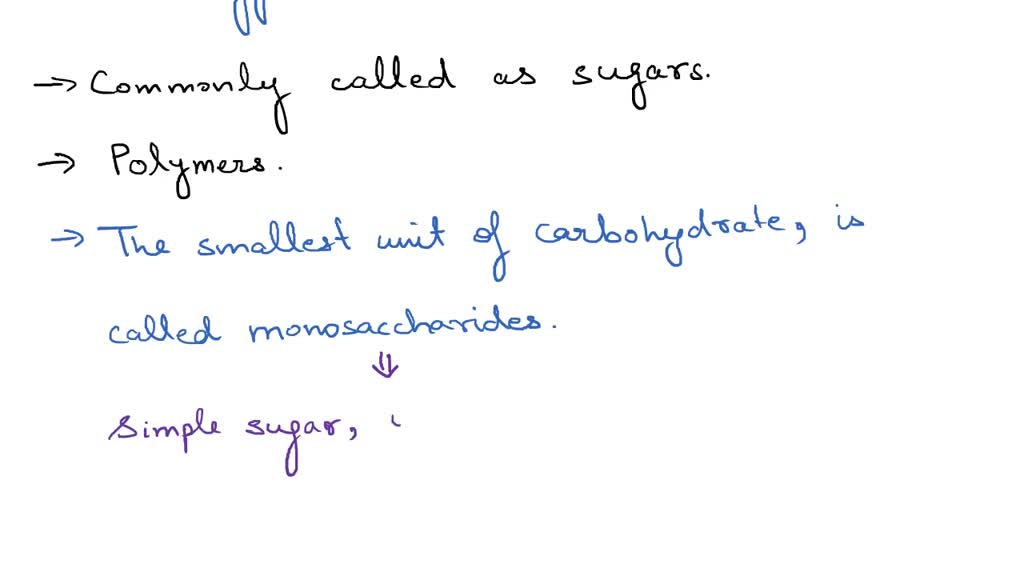 → Commonly called as sugars.
→ Polymers.
→ The smallest unit of carbohydrate, is
called monosaccharides.
⇓
Simple sugar,